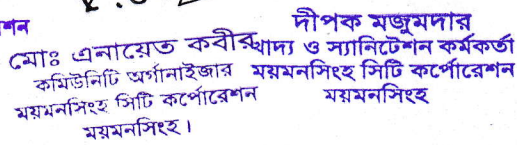 শন
মোঃ এনায়েত কবীর
কমিউনিটি অর্গানাইজার
ময়মনসিংহ সিটি কর্পোরেশন
ময়মনসিংহ।
দীপক মজুমদার
খাদ্য ও স্যানিটেশন কর্মকর্তা
ময়মনসিংহ সিটি কর্পোরেশন
ময়মনসিংহ